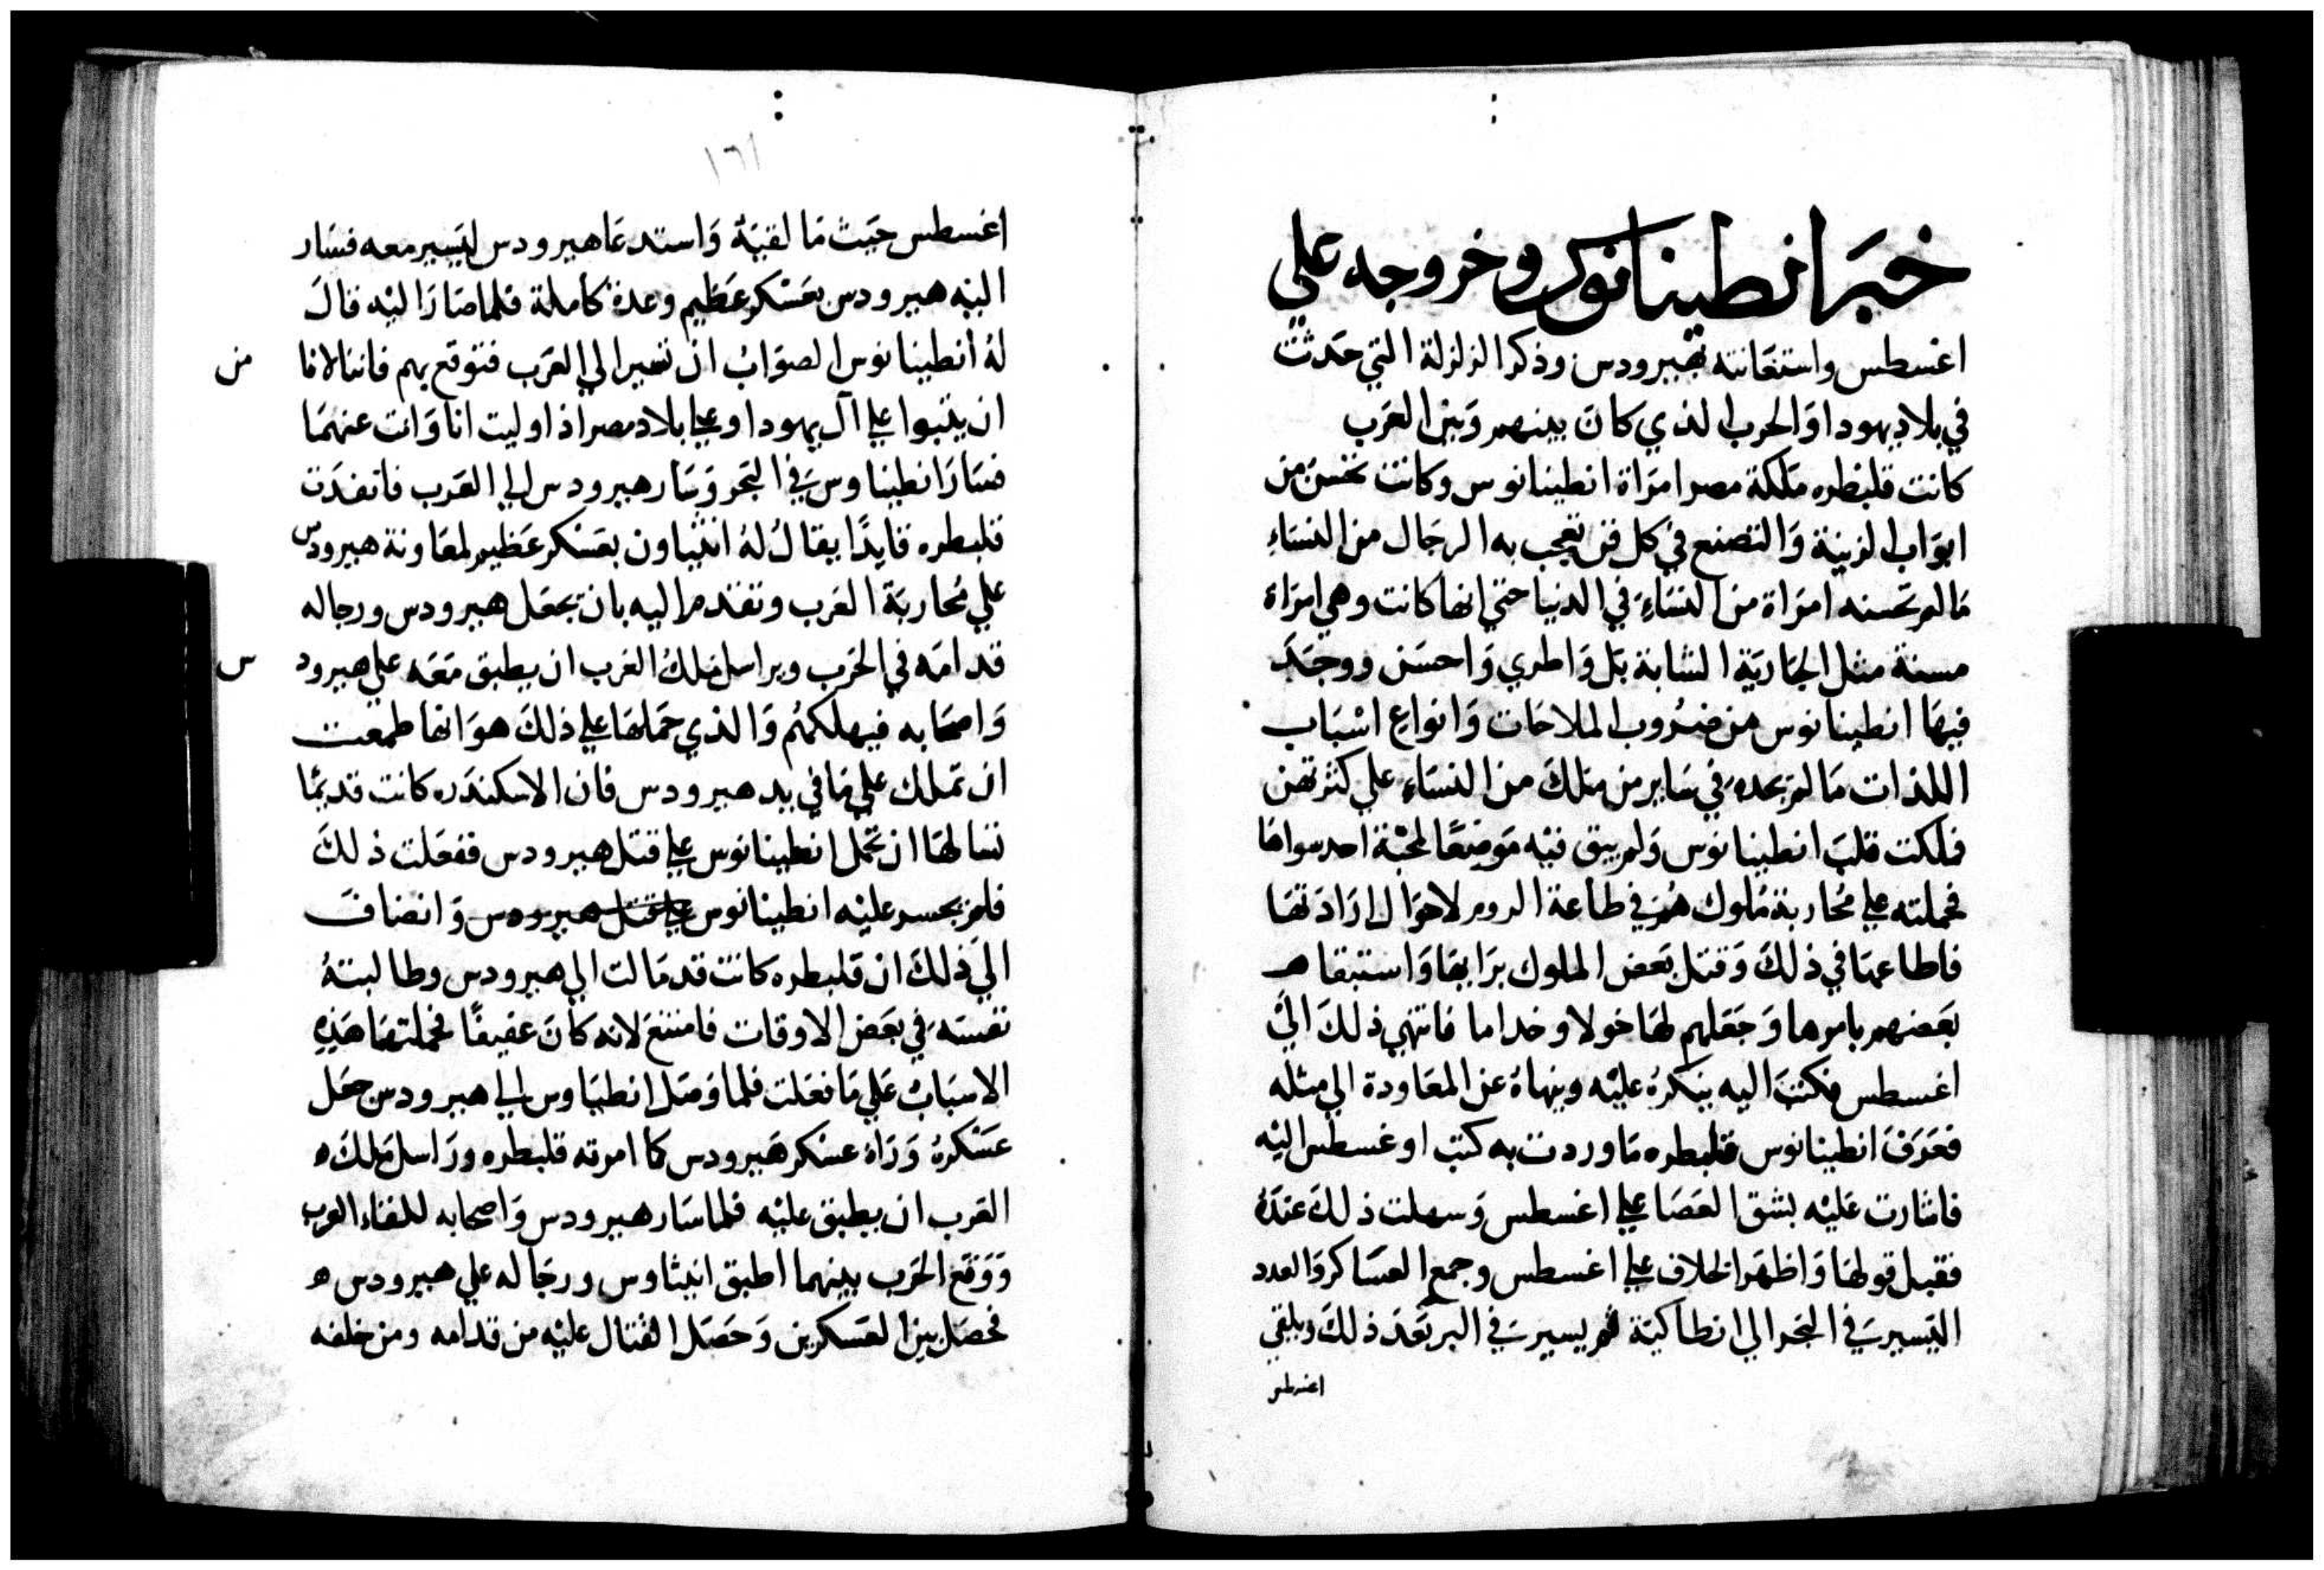 خبر انطينانوس وخروجه علي
اغسطس واستعانته بهيرودس وذكر الزلزلة التي حدثت
في بلاد يهودا والحرب الذي كان بينهم وبين العرب
كانت قلبطره ملكة مصر امراة انطينانوس وكانت تحسن من
ابواب الزينة والتصنع في كل فن تعجب به الرجال من النساء
ما لم تحسنه امراة من النساء في الدنيا حتي انها كانت وهي امراة
مسنة مثل الجارية الشابة بل واطري واحسن ووجد
فيها انطينانوس من ضروب الملاحات وانواع اسباب
اللذات ما لم يجده في ساير من ملك من النساء علي كثرتهن
فملكت قلب انطينانوس ولم يبق فيه موضعا لمحبة احد سواها
فحملته علي محاربة ملوك هم في طاعة الروم لاحوال ارادتها
فاطاعها في ذلك وقتل بعض الملوك برايها واستبقا
بعضهم بامرها وجعلهم لها خولا وخداما فانتهي ذلك الي
اغسطس فكتب اليه ينكره عليه وينهاه عن المعاودة الي مثله
فعرف انطينانوس قلبطره ما وردت به كتب اوغسطس اليه
فاشارت عليه بشق العصا علي اغسطس وسهلت ذلك عنده
فقبل قولها واظهر الخلاف علي اغسطس وجمع العساكر والعدد
اليسير في البحر الي انطاكية ثم يسير في البر بعد ذلك ويلقي
اغسطس
١٦١
اغسطس حيث ما لقيه واستدعا هيرودس ليسير معه فسار
اليه هيرودس بعسكر عظيم وعدة كاملة فلما صار اليه قال
له انطينانوس الصواب ان تسير الي العرب فتوقع بهم فاننا لا نا من
ان يثبوا علي آل يهودا وعلي بلاد مصر اذا وليت انا وانت عنهما
فسار انطيناوس في البحر وسار هيرودس الي العرب فانفذت
قلبطره قايدا يقال له انيثاون بعسكر عظيم لمعاونة هيرودس
علي محاربة العرب وتقدم اليه بان يجعل هيرودس ورجاله
قدامه في الحرب ويراسل ملك العرب ان يطبق معه علي هيرود س
واصحابه فيهلكهم والذي حملها علي ذلك هو انها طمعت
ان تملك علي ما في يد هيرودس فان الاسكندره كانت قديما
تسالها ان تحمل انطينانوس علي قتل هيرودس ففعلت ذلك
فلم يجسر عليه انطينانوس علي قتل هيرودس وانضاف
الي ذلك ان قلبطره كانت قد مالت الي هيرودس وطالبته
نفسه في بعض الاوقات فامتنع لانه كان عفيفا فحملتها هذه
الاسباب علي ما فعلت فلما وصل انطيثاوس الي هيرودس جعل
عسكره وراه عسكر هيرودس كما امرته قلبطره وراسل ملك
العرب ان يطبق عليه فلما سار هيرودس واصحابه للقاء العرب
ووقع الحرب بينهما اطبق انيثاوس ورجاله علي هيرودس
فحصل بين العسكرين وحصل القتال عليه من قدامه ومن خلفه